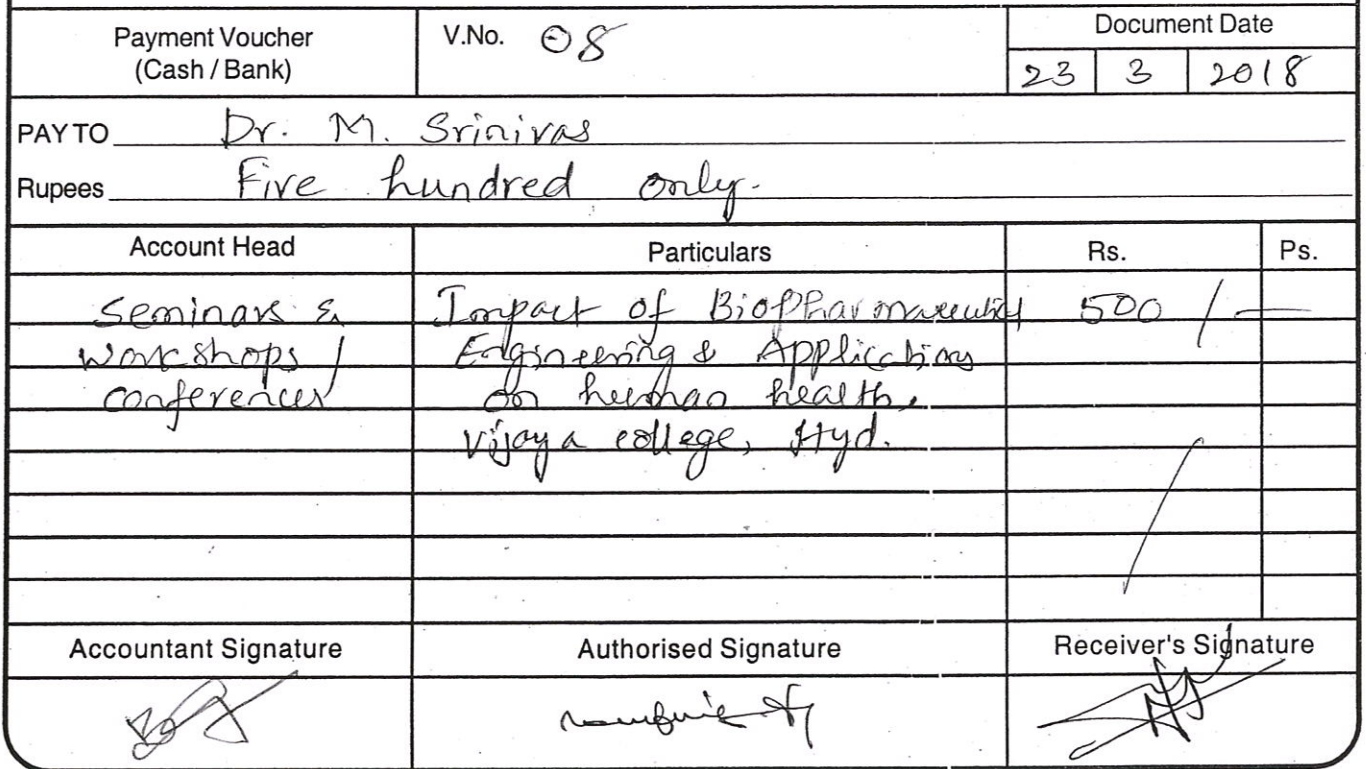 Payment Voucher
(Cash / Bank)
V.No. 08
Document Date
23 3 2018
PAY TO Dr. M. Srinivas
Rupees Five hundred only.
Account Head Particulars Rs. Ps.
Seminars & Impact of BioPharmaceutical 500 / —
workshops / Engineering & Applications
conferences on human health,
vijaya college, Hyd.
Accountant Signature Authorised Signature Receiver's Signature